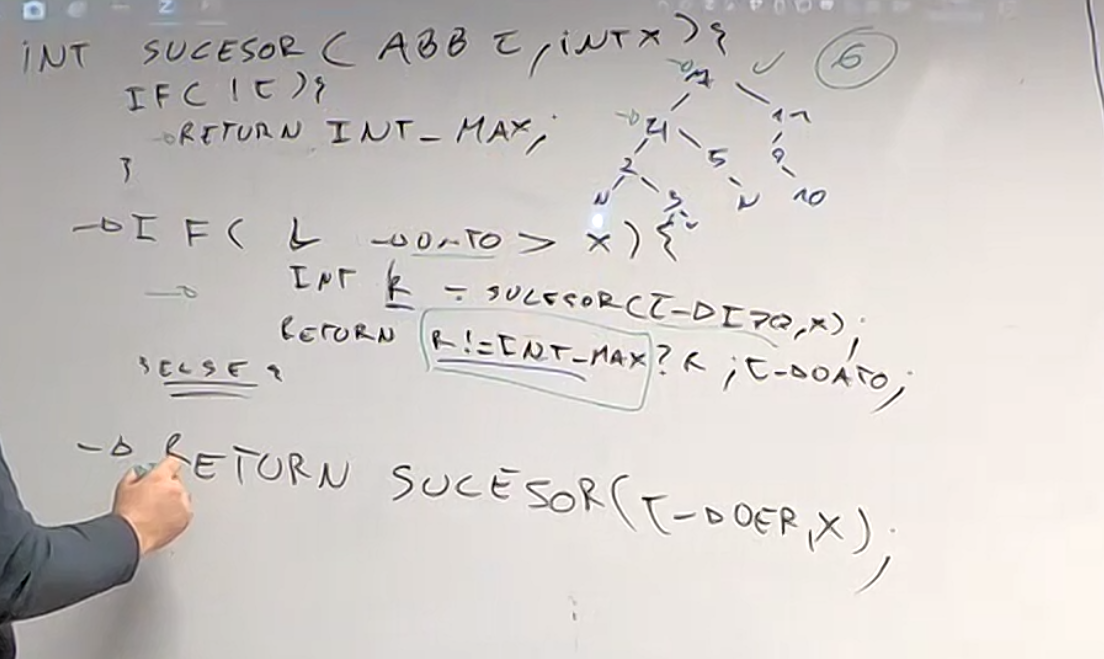 INT SUCESOR ( ABB T, INT X ) {
IF( !T ){
RETURN INT_MAX;
}
IF( T→DATO > X ) {
INT R = SUCESOR(T→IZQ, X);
RETURN R!=INT_MAX? R ; T→DATO;
} ELSE {
→ RETURN SUCESOR(T→DER, X);
6
7
4 11
2 5 9
N 3 N 10